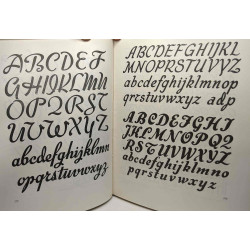 ABCDEF
GHIJKLMn
OPQ2RST
UVWXYZ
abcdefghijklmn
opqrstuvwxyz
ABCDEFGHIJKL
MNOPQRSTUVWXYZ
abcdefghijklmno
pqrstuvwxyz adp
ABCDEFGHI
JKLMNOPQ2
RSTUVWXYZ
abcdefghijklmno
pqrstuvwxyz